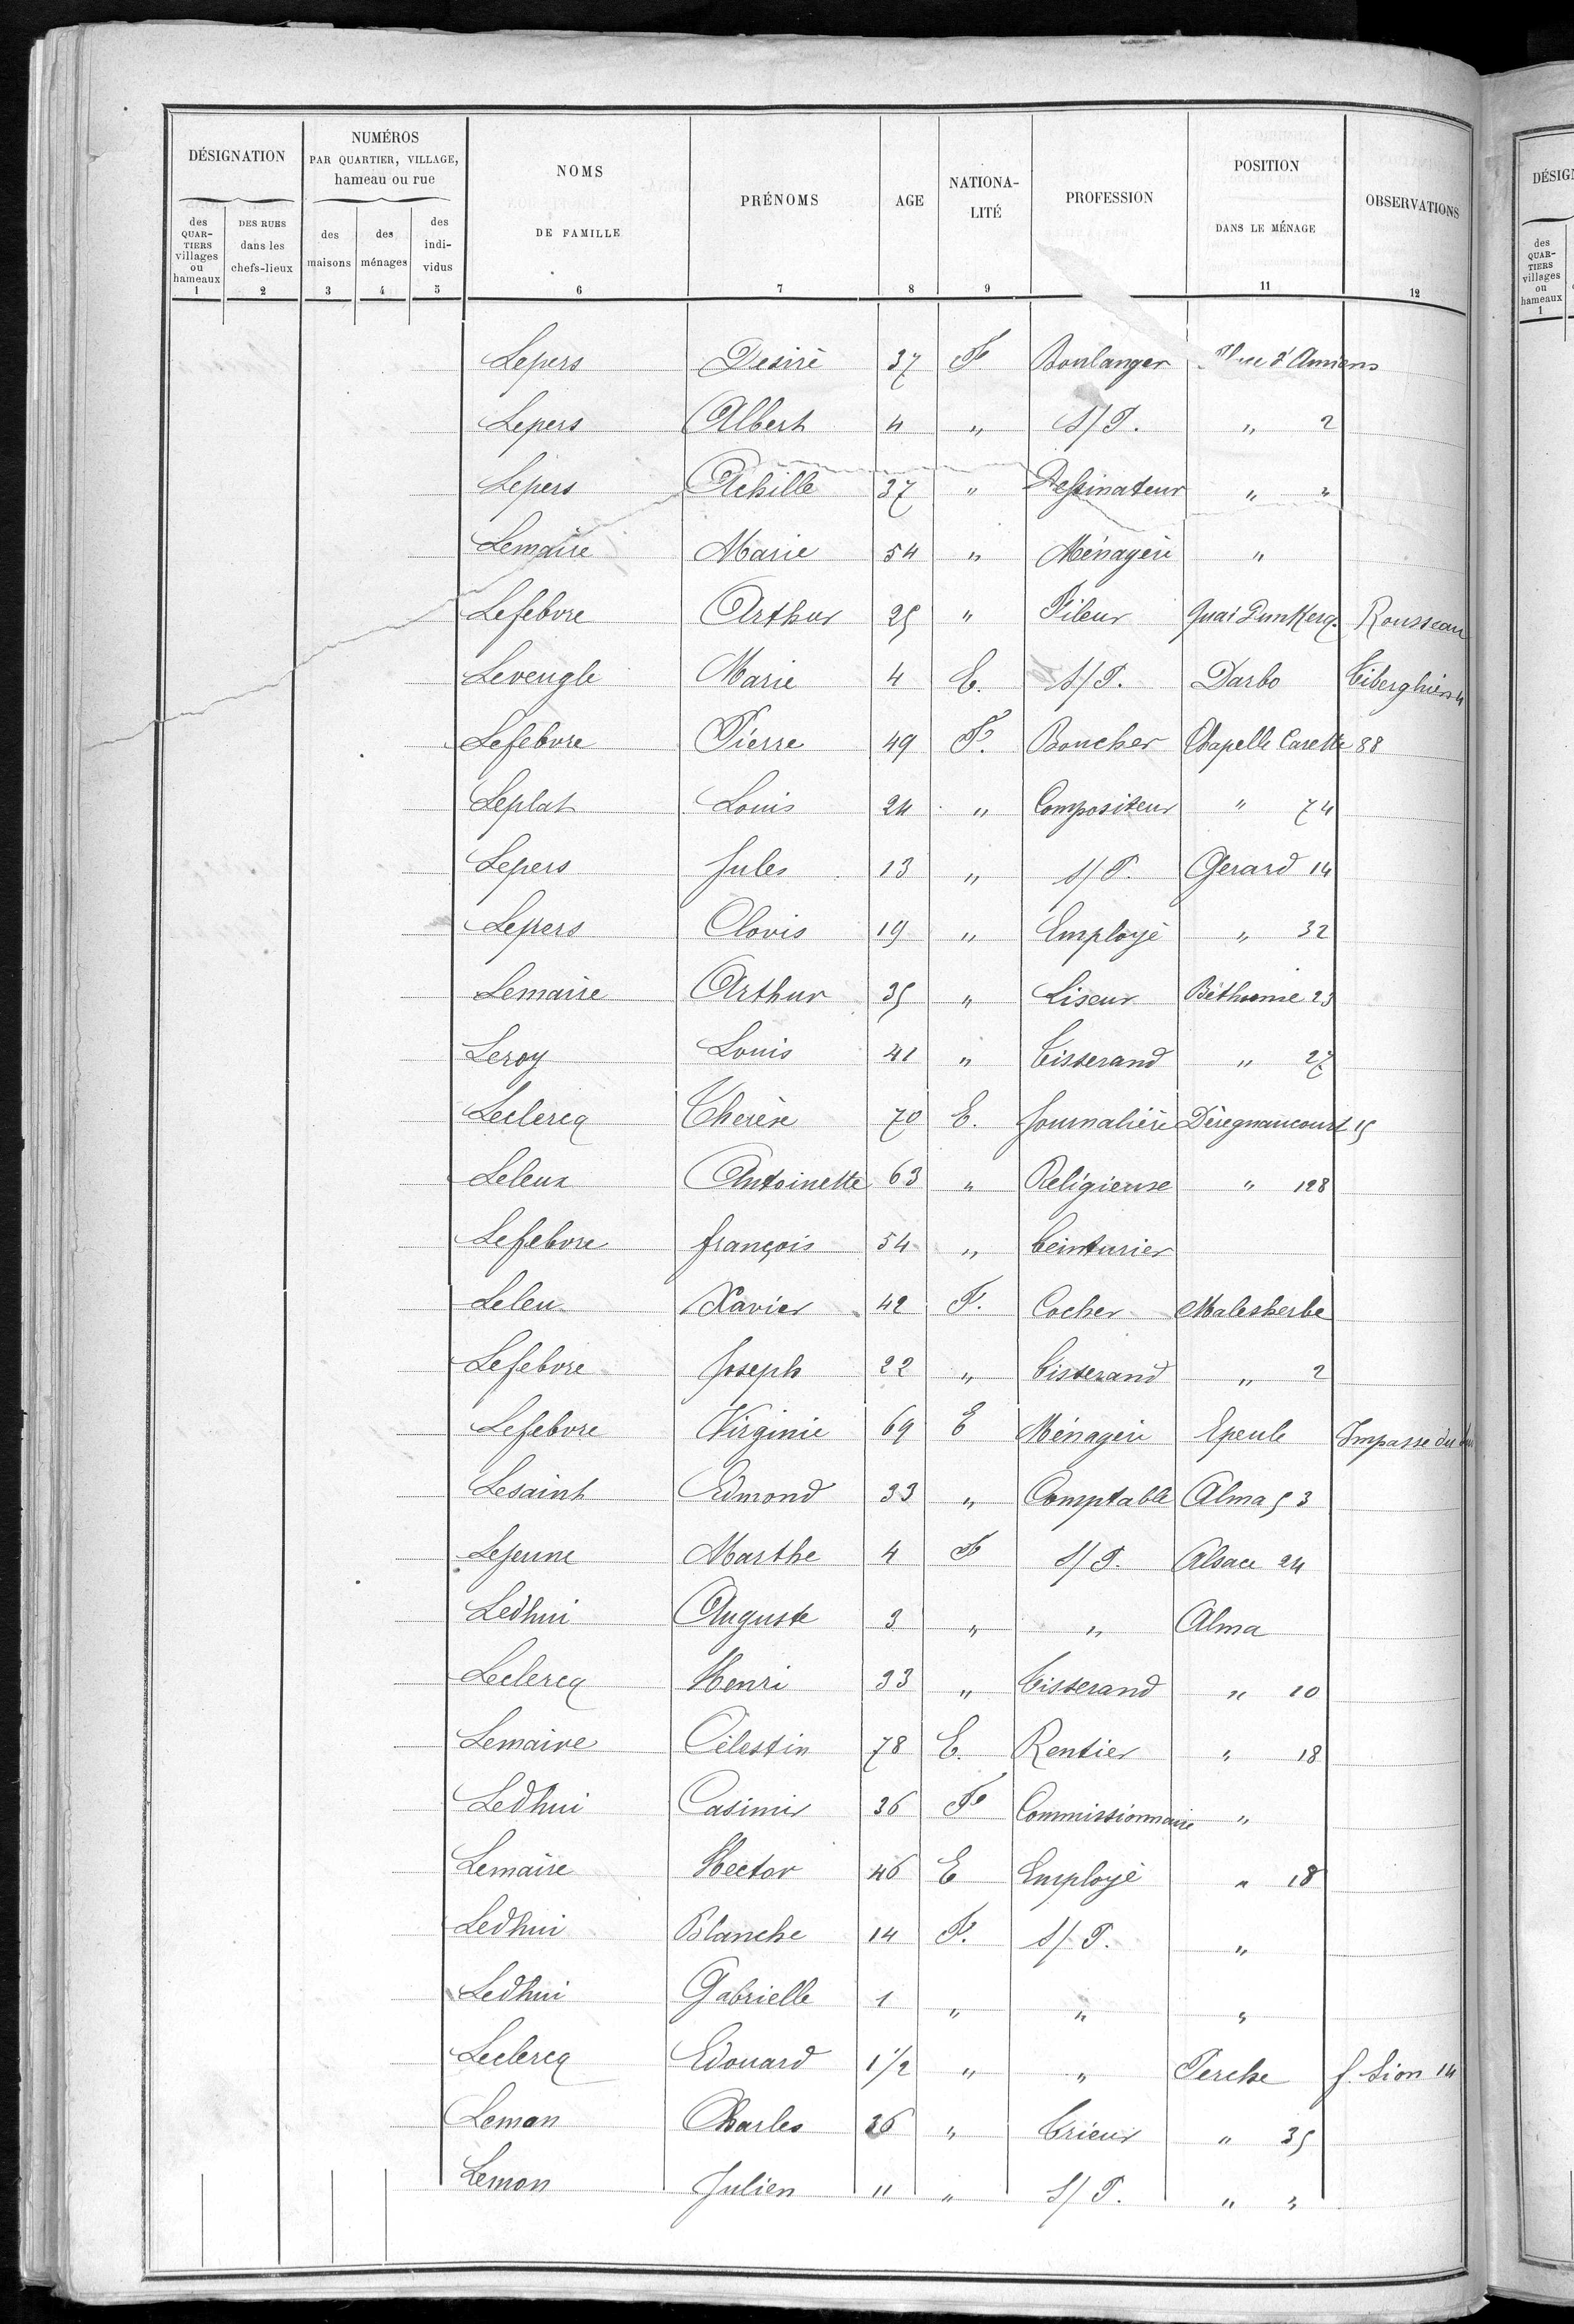 DÉSIGNATION
NUMÉROS
PAR QUARTIER, VILLAGE,
hameau ou rue
NOMS
DE FAMILLE
PRÉNOMS
AGE
NATIONA-
LITÉ
PROFESSION
POSITION
DANS LE MÉNAGE
OBSERVATIONS
des
QUAR-
TIERS
villages
ou
hameaux
DES RUES
dans les
chefs-lieux
des
maisons
des
ménages
des
indi-
vidus
1 2 3 4 5 6 7 8 9 11 12
Lepers Desiré 37 F. Boulanger Rue d'Amiens
Lepers Albert 4 " S/P. " 2
Lepers Achille 37 " Dessinateur " "
Lemaire Marie 54 " Ménagère "
Lefebvre Arthur 25 " Fileur Quai Dunkerq. Rousseau
Leveugle Marie 4 E. S/P. Darbo Tiberghien 4
Lefebvre Pierre 49 F. Boucher Chapelle Carette 88
Leplat Louis 24 " Compositeur " 74
Lepers Jules 13 " S/P. Gerard 14
Lepers Clovis 19 " Employé " 32
Lemaire Arthur 35 " Liseur Béthume 23
Leroy Louis 41 " Tisserand " 27
Leclercq Therèse 70 E. Journalière Dèregnaucourt 15
Leleux Antoinette 63 " Religieuse " 128
Lefebvre françois 54 " Teinturier
Leleu Xavier 42 F. Cocher Malesherbe
Lefebvre Joseph 22 " Tisserand " 2
Lefebvre Virginie 69 E Ménagère Epeule Impasse du
Lesaint Edmond 33 " Comptable Alma 53
Lejeune Marthe 4 F S/P. Alsace 24
Ledhui Auguste 3 " " Alma
Leclercq Henri 33 " Tisserand " 10
Lemaire Célestin 78 E. Rentier " 18
Ledhui Casimir 36 F Commissionnaire "
Lemaire Hector 46 E Employé " 18
Ledhui Blanche 14 F. S/P. "
Ledhui Gabrielle 1 " " "
Leclercq Edouard 1 1/2 " " Perche f. Sion 14
Leman Charles 36 " Trieur " 35
Leman Julien 11 " S/P. " "
DÉSIG
des
QUAR-
TIERS
villages
ou
hameaux
1